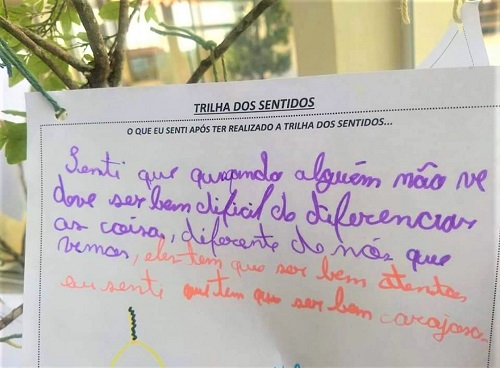 TRILHA DOS SENTIDOS
O QUE EU SENTI APÓS TER REALIZADO A TRILHA DOS SENTIDOS...
Senti que quando alguém não ve
dove ser bem dificil do diferenciar
as coisa, diferente do nós que
vemos, eles tem que ser bem atentos
eu senti que tem que ser bem corajoso.